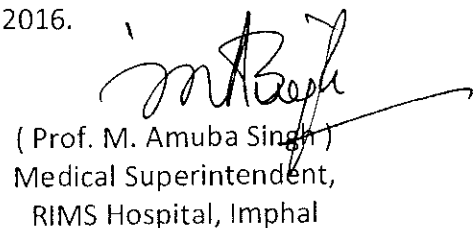 2016.
( Prof. M. Amuba Singh )
Medical Superintendent,
RIMS Hospital, Imphal